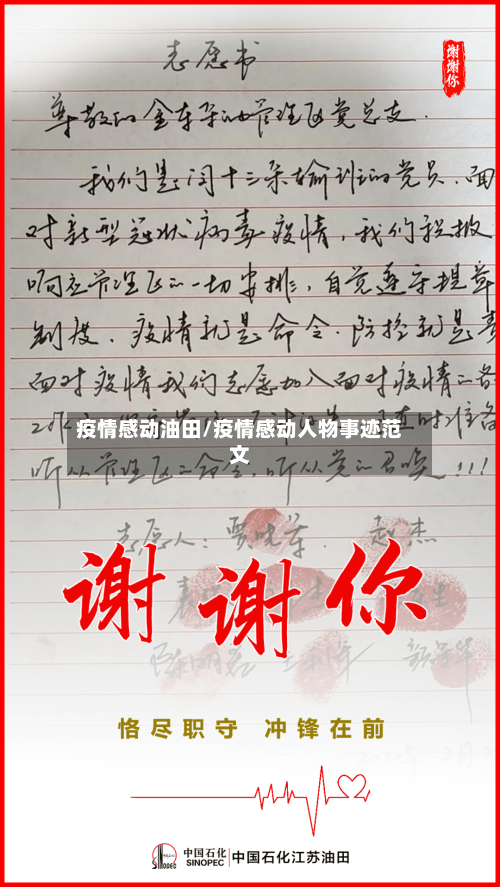 谢谢你
志愿书
尊敬的金东采油管理区党总支.
我们是闵十三采输班的党员.面
对新型冠状病毒疫情,我们积极
响应管理区的一切安排,自觉遵守规章
制度.疫情就是命令.防控就是责
面对疫情我们志愿加入面对疫情的各
疫情感动油田/疫情感动人物事迹范
文
听从管理区的命令,听从党的召唤!!!
志愿人:
谢谢你
恪尽职守 冲锋在前
中国石化
SINOPEC
中国石化江苏油田